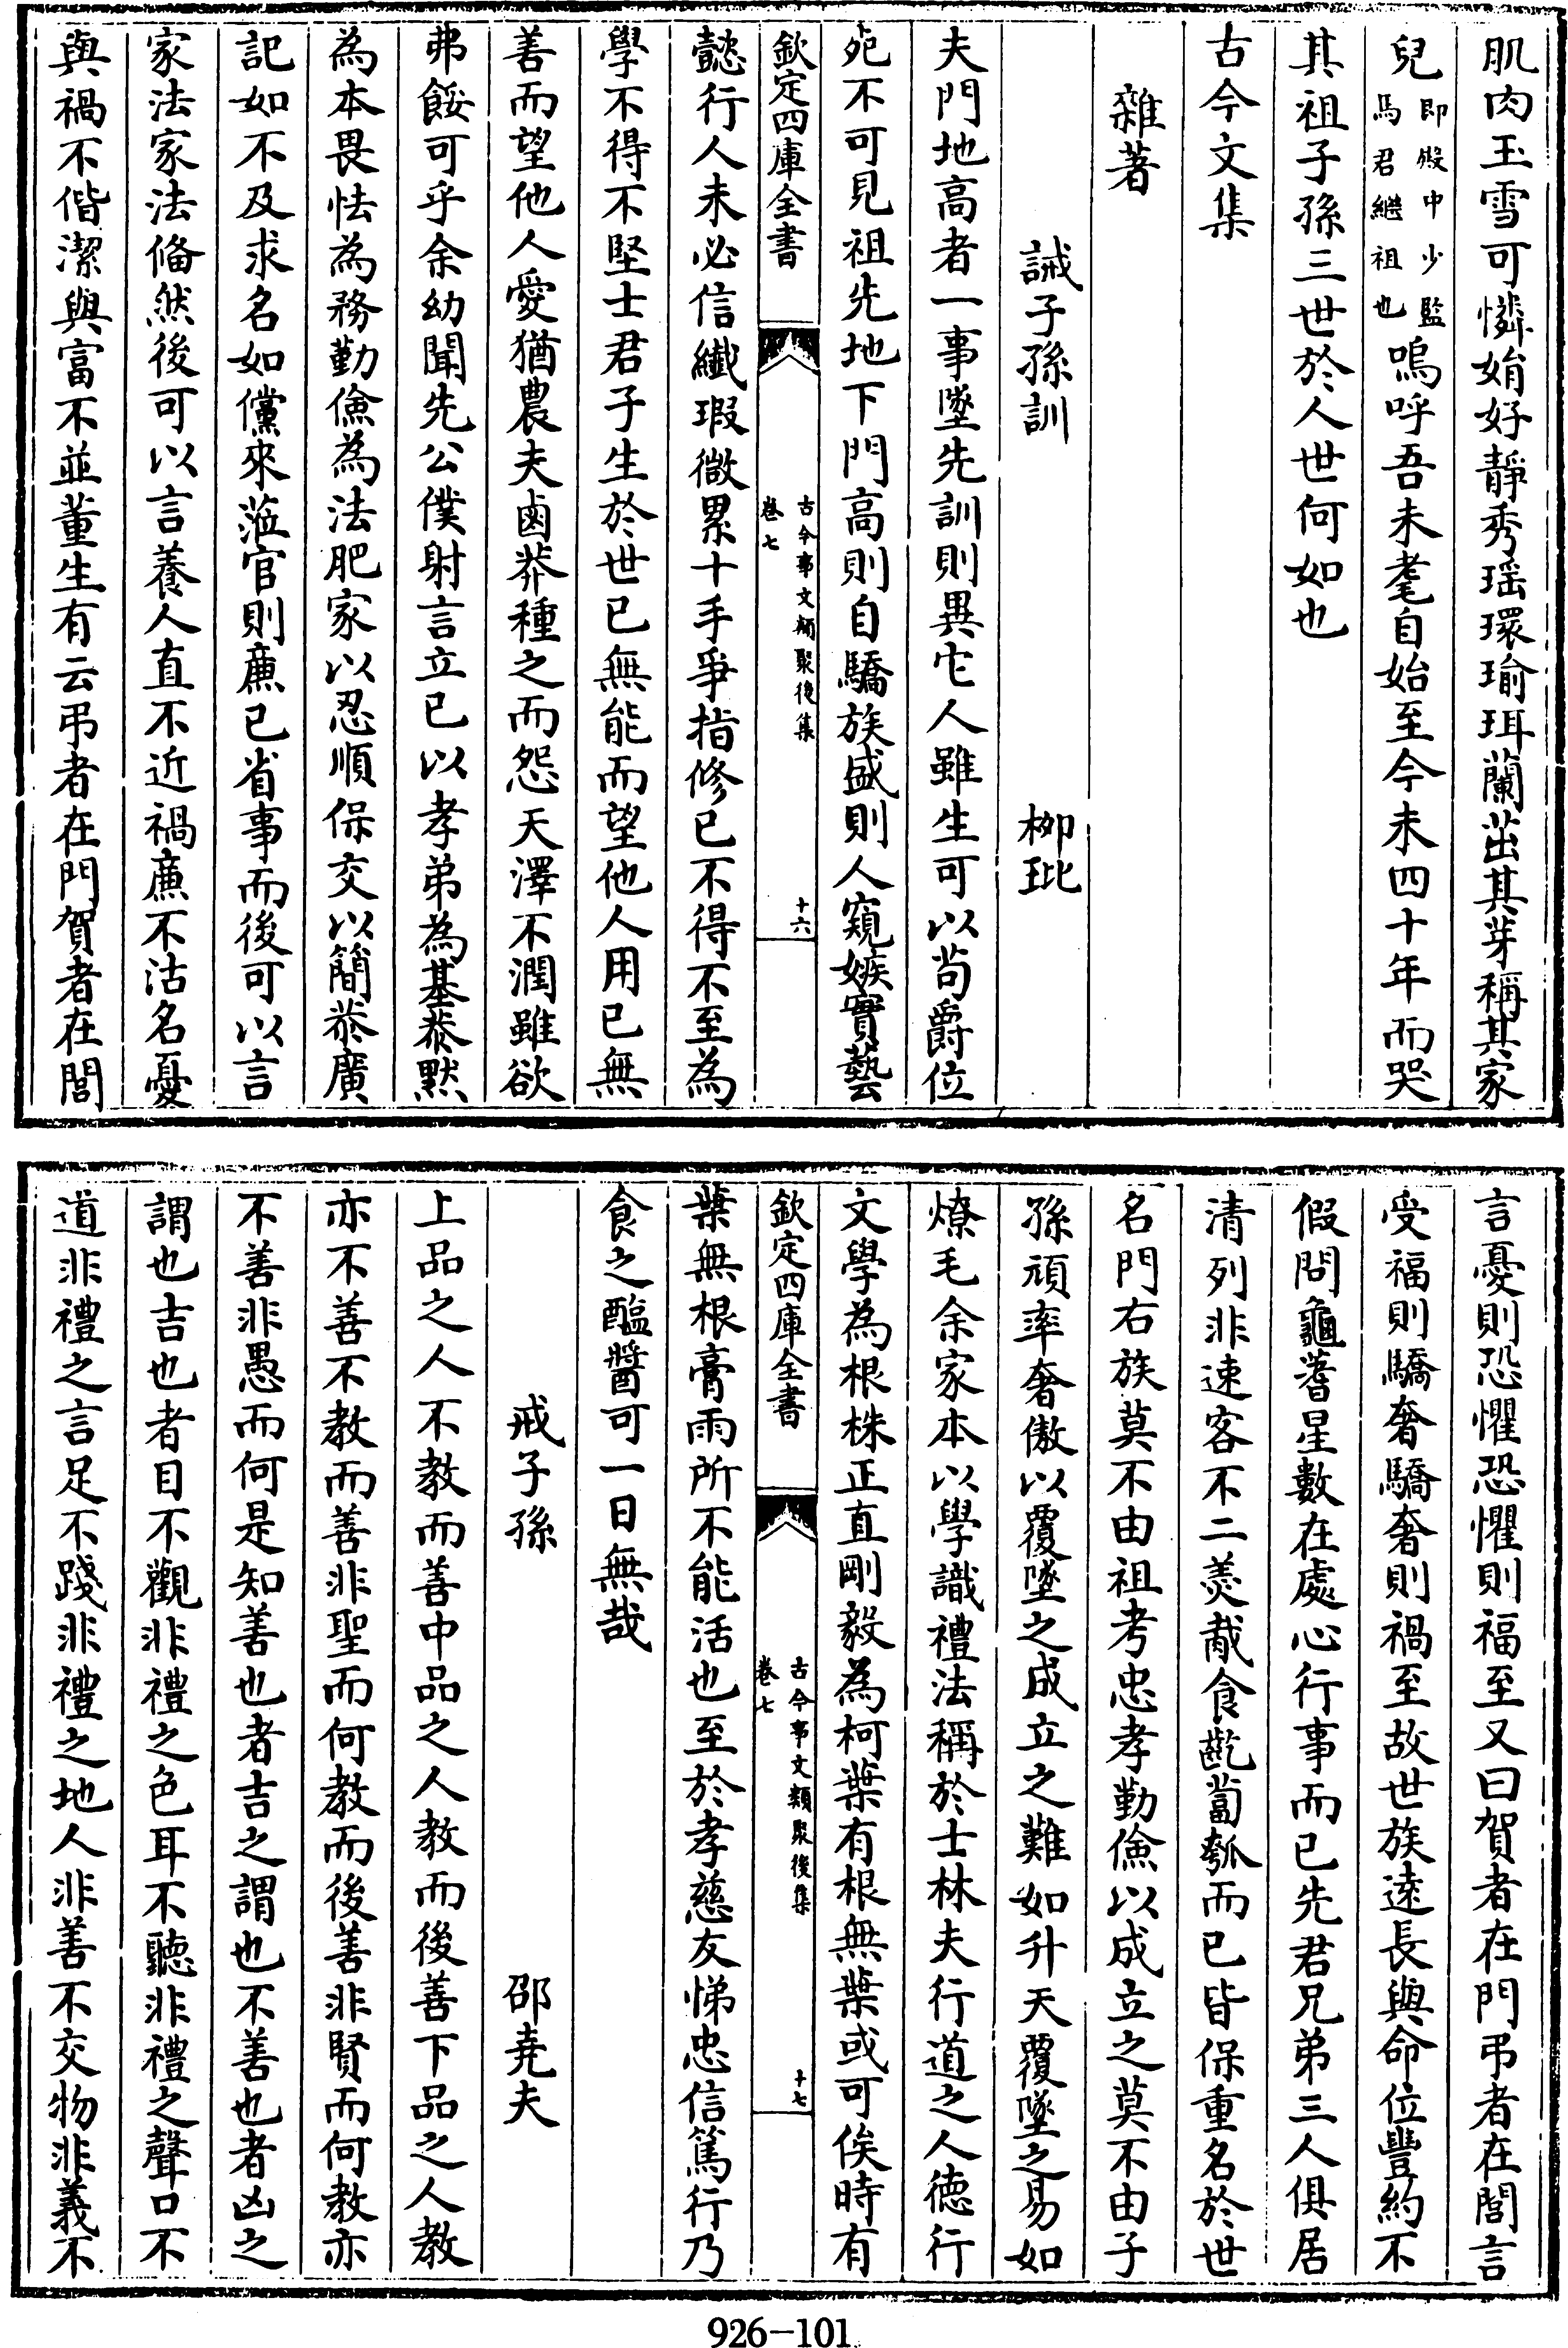 肌肉玉雪可憐娟好靜秀瑶環瑜珥蘭茁其芽稱其家
兒即殿中少監馬君繼祖也嗚呼吾未耄自始至今未四十年而哭
其祖子孫三世於人世何如也
古今文集
雜著
誡子孫訓 柳玭
夫門地高者一事墜先訓則異它人雖生可以苟爵位
死不可見祖先地下門高則自驕族盛則人窺嫉實藝
欽定四庫全書 古今事文類聚後集 卷七 十六
懿行人未必信纖瑕微累十手爭指修已不得不至為
學不得不堅士君子生於世已無能而望他人用已無
善而望他人愛猶農夫鹵莽種之而怨天澤不潤雖欲
弗餒可乎余幼聞先公僕射言立已以孝弟為基恭黙
為本畏怯為務勤儉為法肥家以忍順保交以簡恭廣
記如不及求名如儻來蒞官則亷已省事而後可以言
家法家法備然後可以言養人直不近禍亷不沽名憂
與禍不偕潔與富不並董生有云弔者在門賀者在閭
言憂則恐懼恐懼則福至又曰賀者在門弔者在閭言
受福則驕奢驕奢則禍至故世族逺長與命位豐約不
假問龜蓍星數在處心行事而已先君兄弟三人俱居
清列非速客不二羮胾食齕蔔瓠而已皆保重名於世
名門右族莫不由祖考忠孝勤儉以成立之莫不由子
孫頑率奢傲以覆墜之成立之難如升天覆墜之易如
燎毛余家本以學識禮法稱於士林夫行道之人德行
文學為根株正直剛毅為柯葉有根無葉或可俟時有
欽定四庫全書 古今事文類聚後集 卷七 十七
葉無根膏雨所不能活也至於孝慈友悌忠信篤行乃
食之醢醬可一日無哉
戒子孫 邵堯夫
上品之人不教而善中品之人教而後善下品之人教
亦不善不教而善非聖而何教而後善非賢而何教亦
不善非愚而何是知善也者吉之謂也不善也者凶之
謂也吉也者目不觀非禮之色耳不聽非禮之聲口不
道非禮之言足不踐非禮之地人非善不交物非義不
926-101